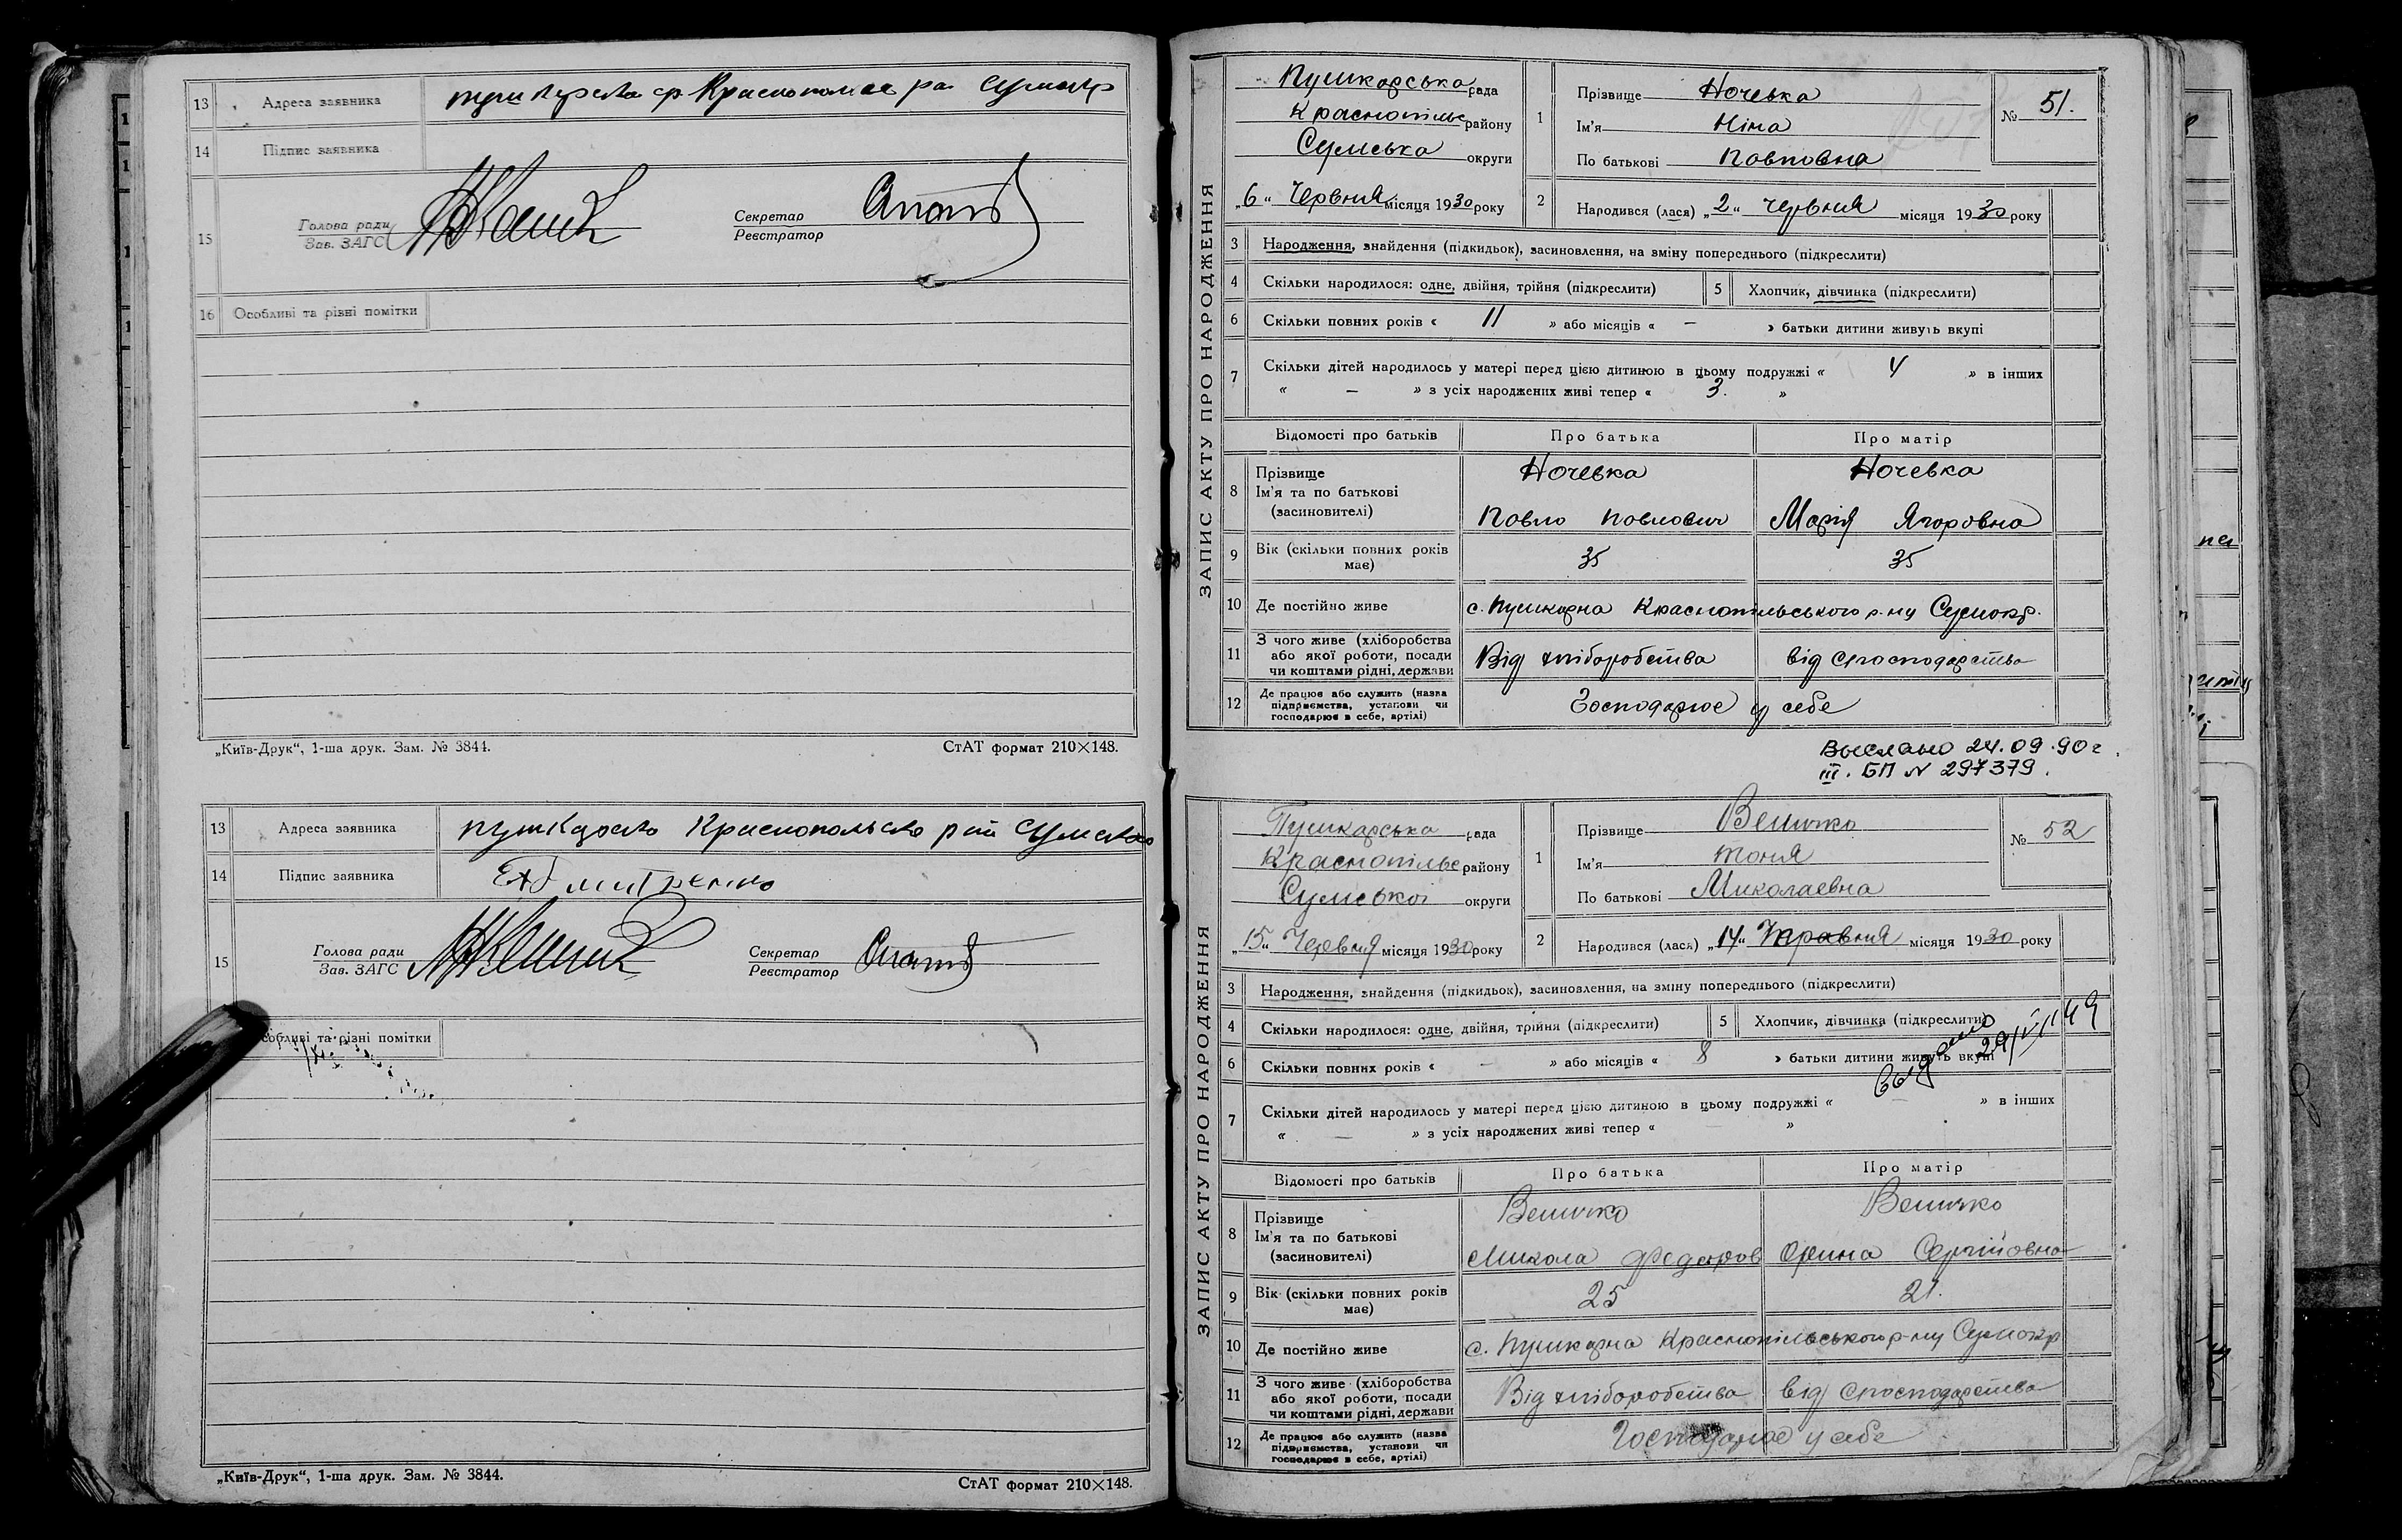 13 Адреса заявника
14 Підпис заявника
15 Голова ради
Зав. ЗАГС
Секретар
Реєстратор
16 Особливі та різні помітки
„Київ-Друк“, 1-ша друк. Зам. № 3844. СтАТ формат 210×148.
13 Адреса заявника
14 Підпис заявника
15 Голова ради
Зав. ЗАГС
Секретар
Реєстратор
собливі та різні помітки
„Київ-Друк“, 1-ша друк. Зам. № 3844. СтАТ формат 210×148.
ЗАПИС АКТУ ПРО НАРОДЖЕННЯ
Пушкарська рада
Краснопільс району
Сумська округи
„6“ Червня місяця 1930 року
1 Прізвище Ночевка
Ім'я Ніна
По батькові Павловна
№ 51.
2 Народився (лася) „2“ червня місяця 1930 року
3 Народження, знайдення (підкидьок), засиновлення, на зміну попереднього (підкреслити)
4 Скільки народилося: одне, двійня, трійня (підкреслити) 5 Хлопчик, дівчинка (підкреслити)
6 Скільки повних років « 11 » або місяців « — » батьки дитини живуть вкупі
7 Скільки дітей народилось у матері перед цією дитиною в цьому подружжі « 4 » в інших
« — » з усіх народжених живі тепер « 3. »
Відомості про батьків Про батька Про матір
8 Прізвище Ночевка Ночевка
Ім'я та по батькові
(засиновителі) Павло Павлович Марія Ягоровна
9 Вік (скільки повних років має) 35 35
10 Де постійно живе с. Пушкарна Краснопільського р-ну Сумокр.
11 З чого живе (хліборобства
або якої роботи, посади
чи коштами рідні, держави Від хліборобства від
12 Де працює або служить (назва
підприємства, установи чи
господарює в себе, артілі) Господарює у себе
Выслано 24.09.90г.
III. БП N 297379.
ЗАПИС АКТУ ПРО НАРОДЖЕННЯ
Пушкарська рада
Краснопільс району
Сумської округи
„15“ Червня місяця 1930 року
1 Прізвище Величко
Ім'я Тоня
По батькові Миколаевна
№ 52
2 Народився (лася) „14“ Травня місяця 1930 року
3 Народження, знайдення (підкидьок), засиновлення, на зміну попереднього (підкреслити)
4 Скільки народилося: одне, двійня, трійня (підкреслити) 5 Хлопчик, дівчинка (підкреслити)
6 Скільки повних років « — » або місяців « 8 » батьки дитини живуть вкупі
7 Скільки дітей народилось у матері перед цією дитиною в цьому подружжі « — » в інших
« — » з усіх народжених живі тепер « »
Відомості про батьків Про батька Про матір
8 Прізвище Величко Величко
Ім'я та по батькові
(засиновителі) Микола Федоров Орина Сергійовна
9 Вік (скільки повних років має) 25 21.
10 Де постійно живе с. Пушкарна Краснопільського р-ну Сумокр
11 З чого живе (хліборобства
або якої роботи, посади
чи коштами рідні, держави Від хліборобства від
12 Де працює або служить (назва
підприємства, установи чи
господарює в себе, артілі) Господарює у себе